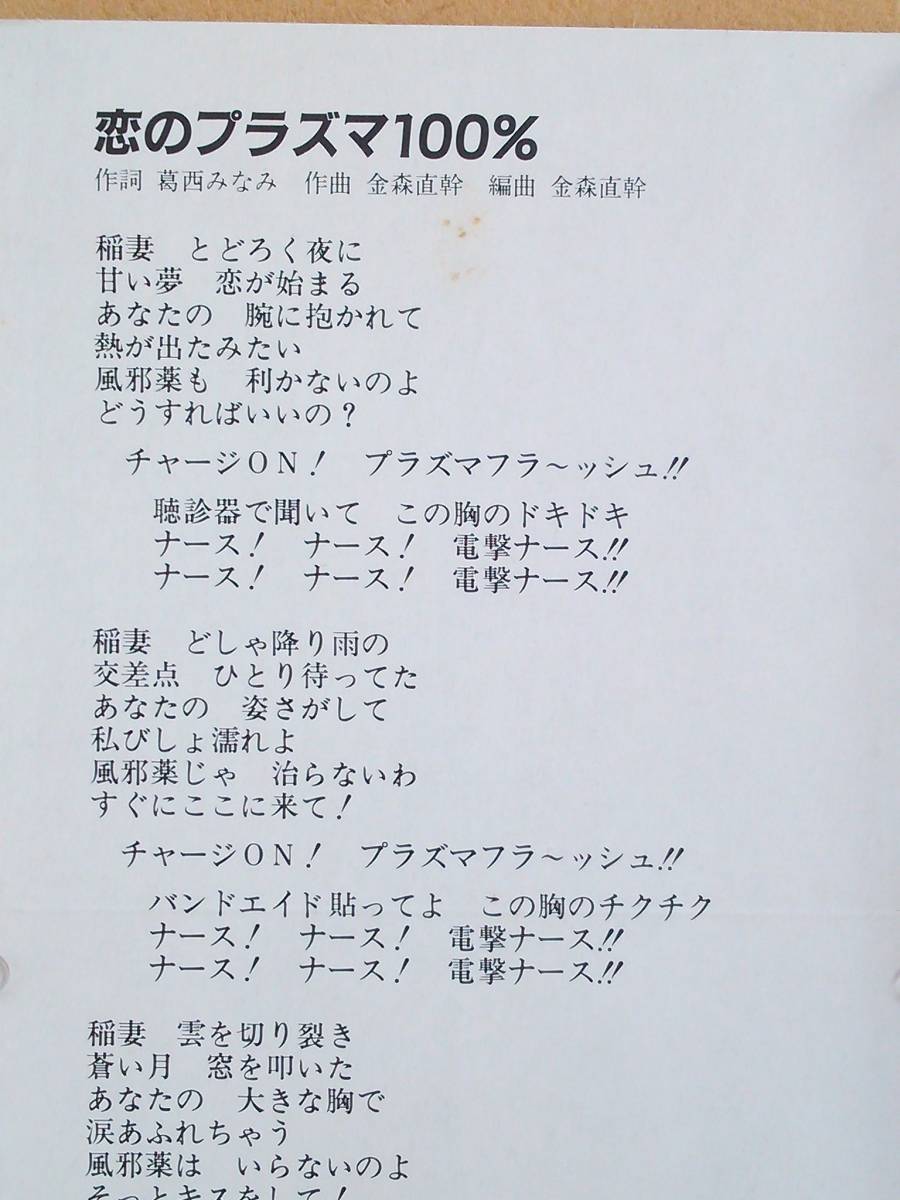 恋のプラズマ100%
作詞 葛西みなみ　作曲 金森直幹　編曲 金森直幹
稲妻　とどろく夜に
甘い夢　恋が始まる
あなたの　腕に抱かれて
熱が出たみたい
風邪薬も　利かないのよ
どうすればいいの？
チャージON！　プラズマフラ〜ッシュ!!
聴診器で聞いて　この胸のドキドキ
ナース！　ナース！　電撃ナース!!
ナース！　ナース！　電撃ナース!!
稲妻　どしゃ降り雨の
交差点　ひとり待ってた
あなたの　姿さがして
私びしょ濡れよ
風邪薬じゃ　治らないわ
すぐにここに来て！
チャージON！　プラズマフラ〜ッシュ!!
バンドエイド貼ってよ　この胸のチクチク
ナース！　ナース！　電撃ナース!!
ナース！　ナース！　電撃ナース!!
稲妻　雲を切り裂き
蒼い月　窓を叩いた
あなたの　大きな胸で
涙あふれちゃう
風邪薬は　いらないのよ
そっとキスをして！